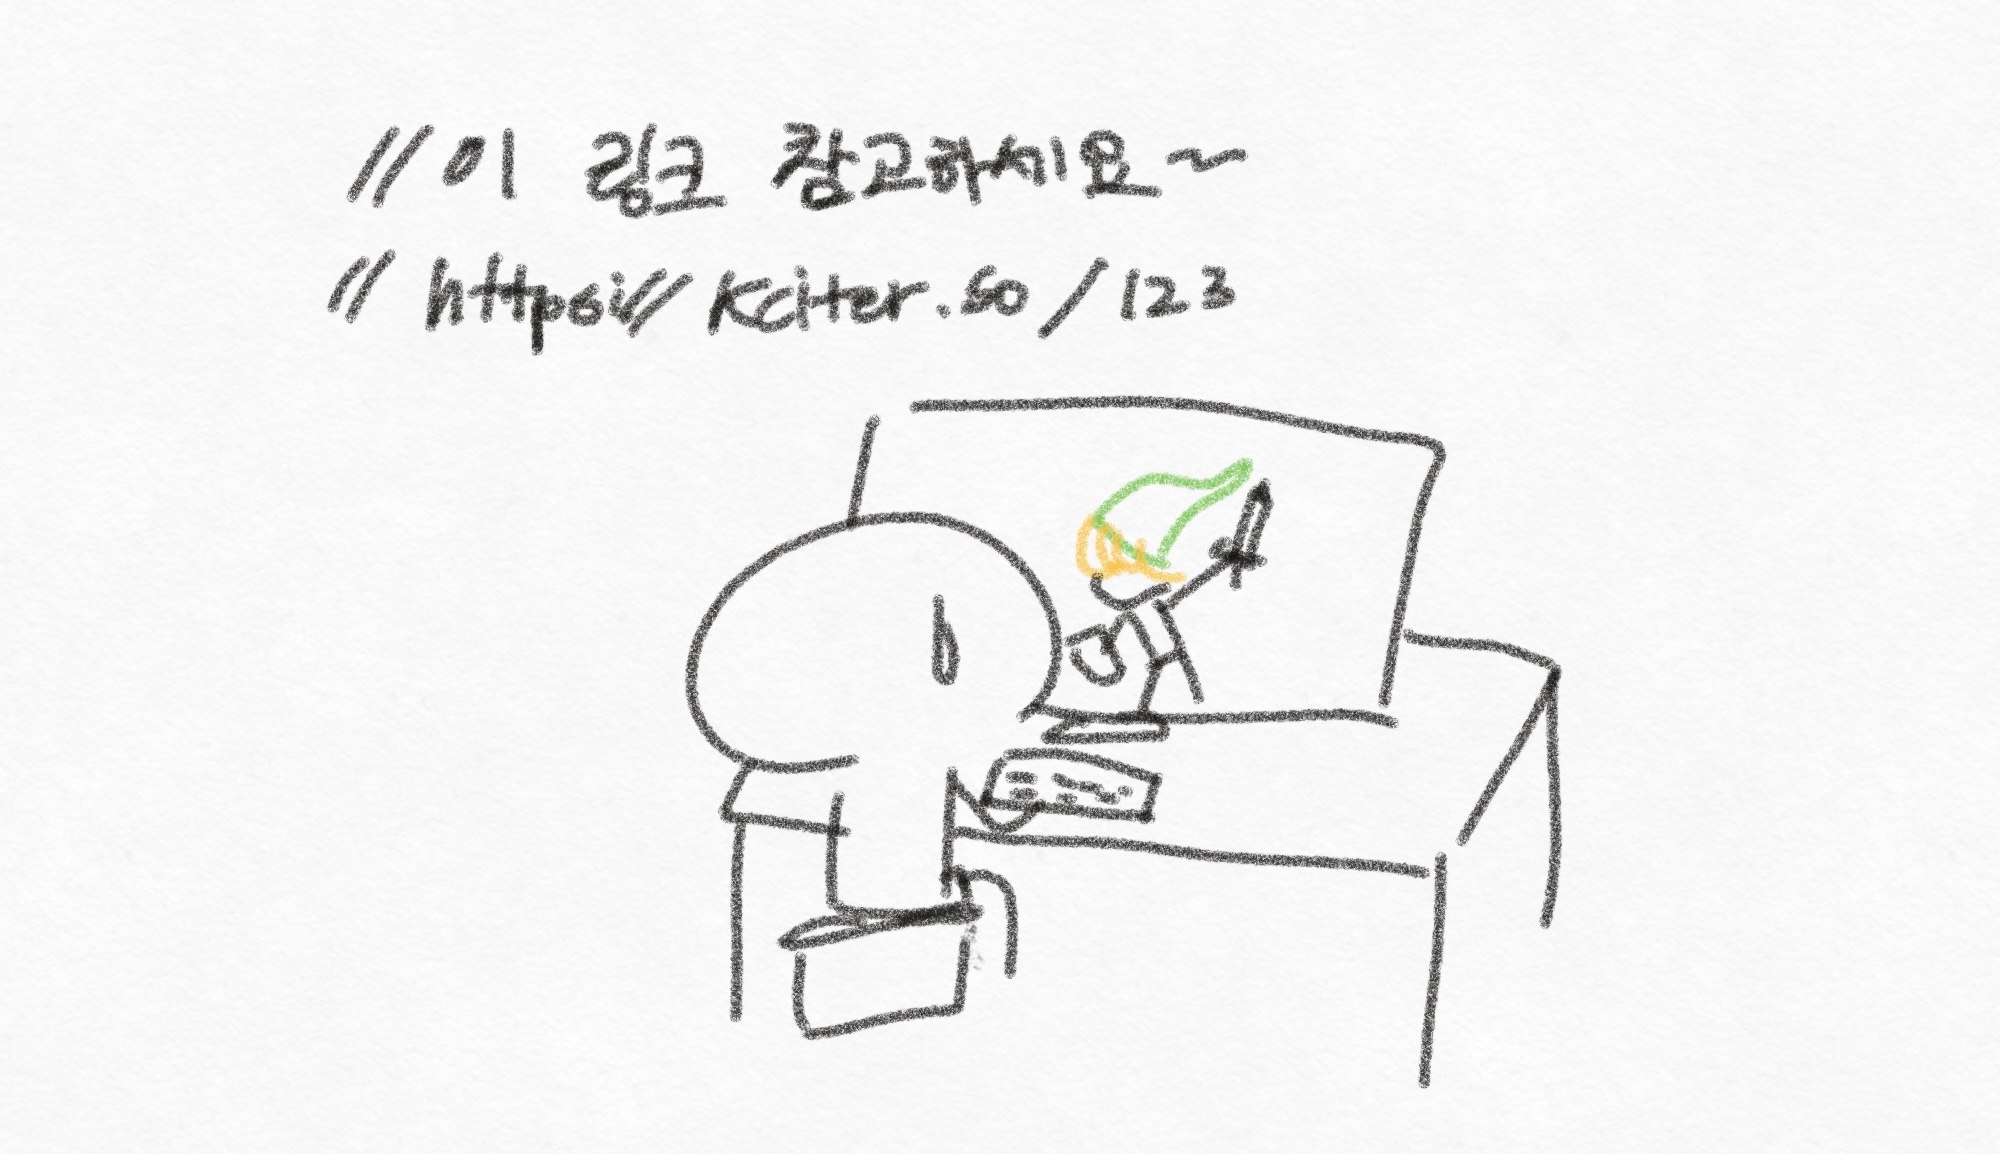 // 이 링크 참고하세요~
// https://kciter.so/123